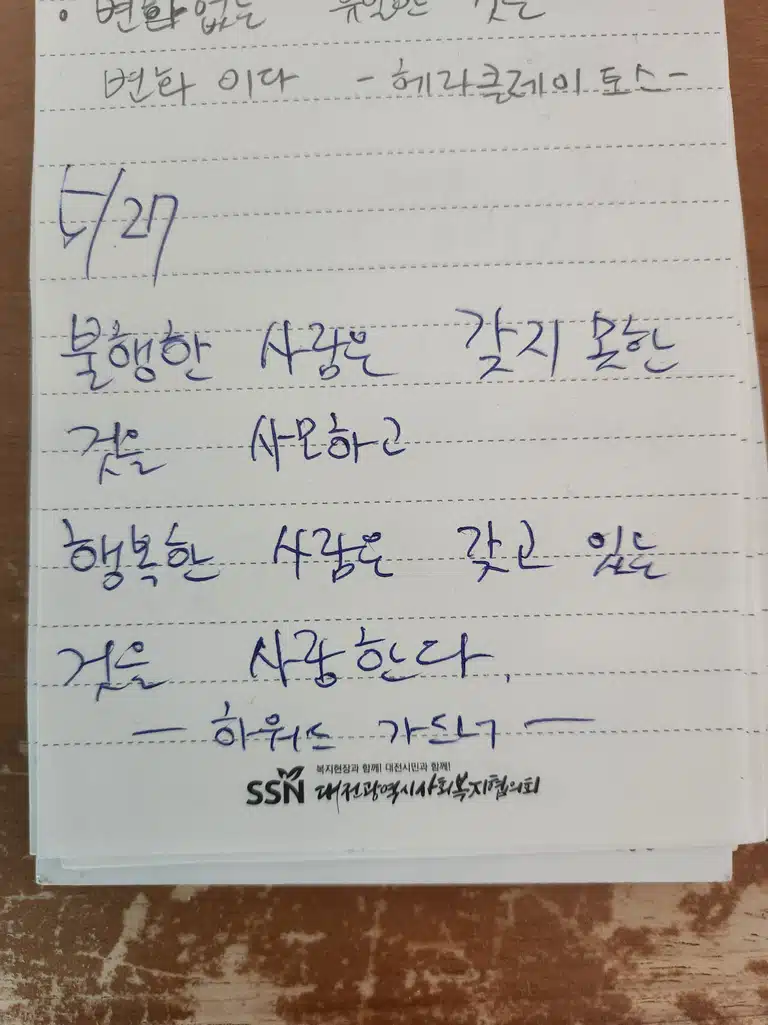 • 변화 없는 유일한 것은
변화 이다 -헤라클레이토스-
5/27
불행한 사람은 갖지 못한
것을 사모하고
행복한 사람은 갖고 있는
것을 사랑한다.
- 하워드 가드너 -
복지현장과 함께! 대전시민과 함께!
SSN 대전광역시사회복지협의회